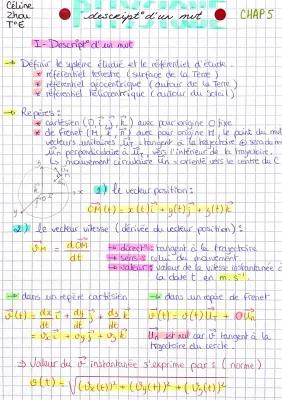 Céline
Zhou
T°E
PHYSIQUE
descript° d'un mvt
CHAP 5
I - Descript° d'un mvt
→ Définir le système étudié et le référentiel d'étude.
* référentiel terrestre (surface de la Terre)
* référentiel géocentrique (autour de la Terre)
* référentiel héliocentrique (autour du Soleil)
→ Repères :
* cartésien (O, i, j, k) avec pour origine O fixe
* de Frenet (M, avec pour origine M, le point du mvt
vecteurs unitaires uT tangent à la trajectoire
uN perpendiculaire à uT, vers l'intérieur de la trajectoire.
↳ mouvement circulaire uN orienté vers le centre du C
1) le vecteur position :
OM(t) = x(t) i + y(t) j + z(t) k
2) le vecteur vitesse (dérivée du vecteur position) :
vM = dOM/dt
→ direct° : tangent à la trajectoire
→ sens : celui du mouvement
→ valeur : valeur de la vitesse instantanée à
la date t en m.s⁻¹.
→ dans un repère cartésien
v(t) = dx/dt i + dy/dt j + dz/dt k
= vx i + vy j + vz k
→ dans un repère de Frenet
v(t) = v(t) uT + 0 uN
uN est nul car v tangent à la
trajectoire du cercle.
⇒ Valeur du v instantanée s'exprime par : (norme)
v(t) = √(vx(t))² + (vy(t))² + (vz(t))²